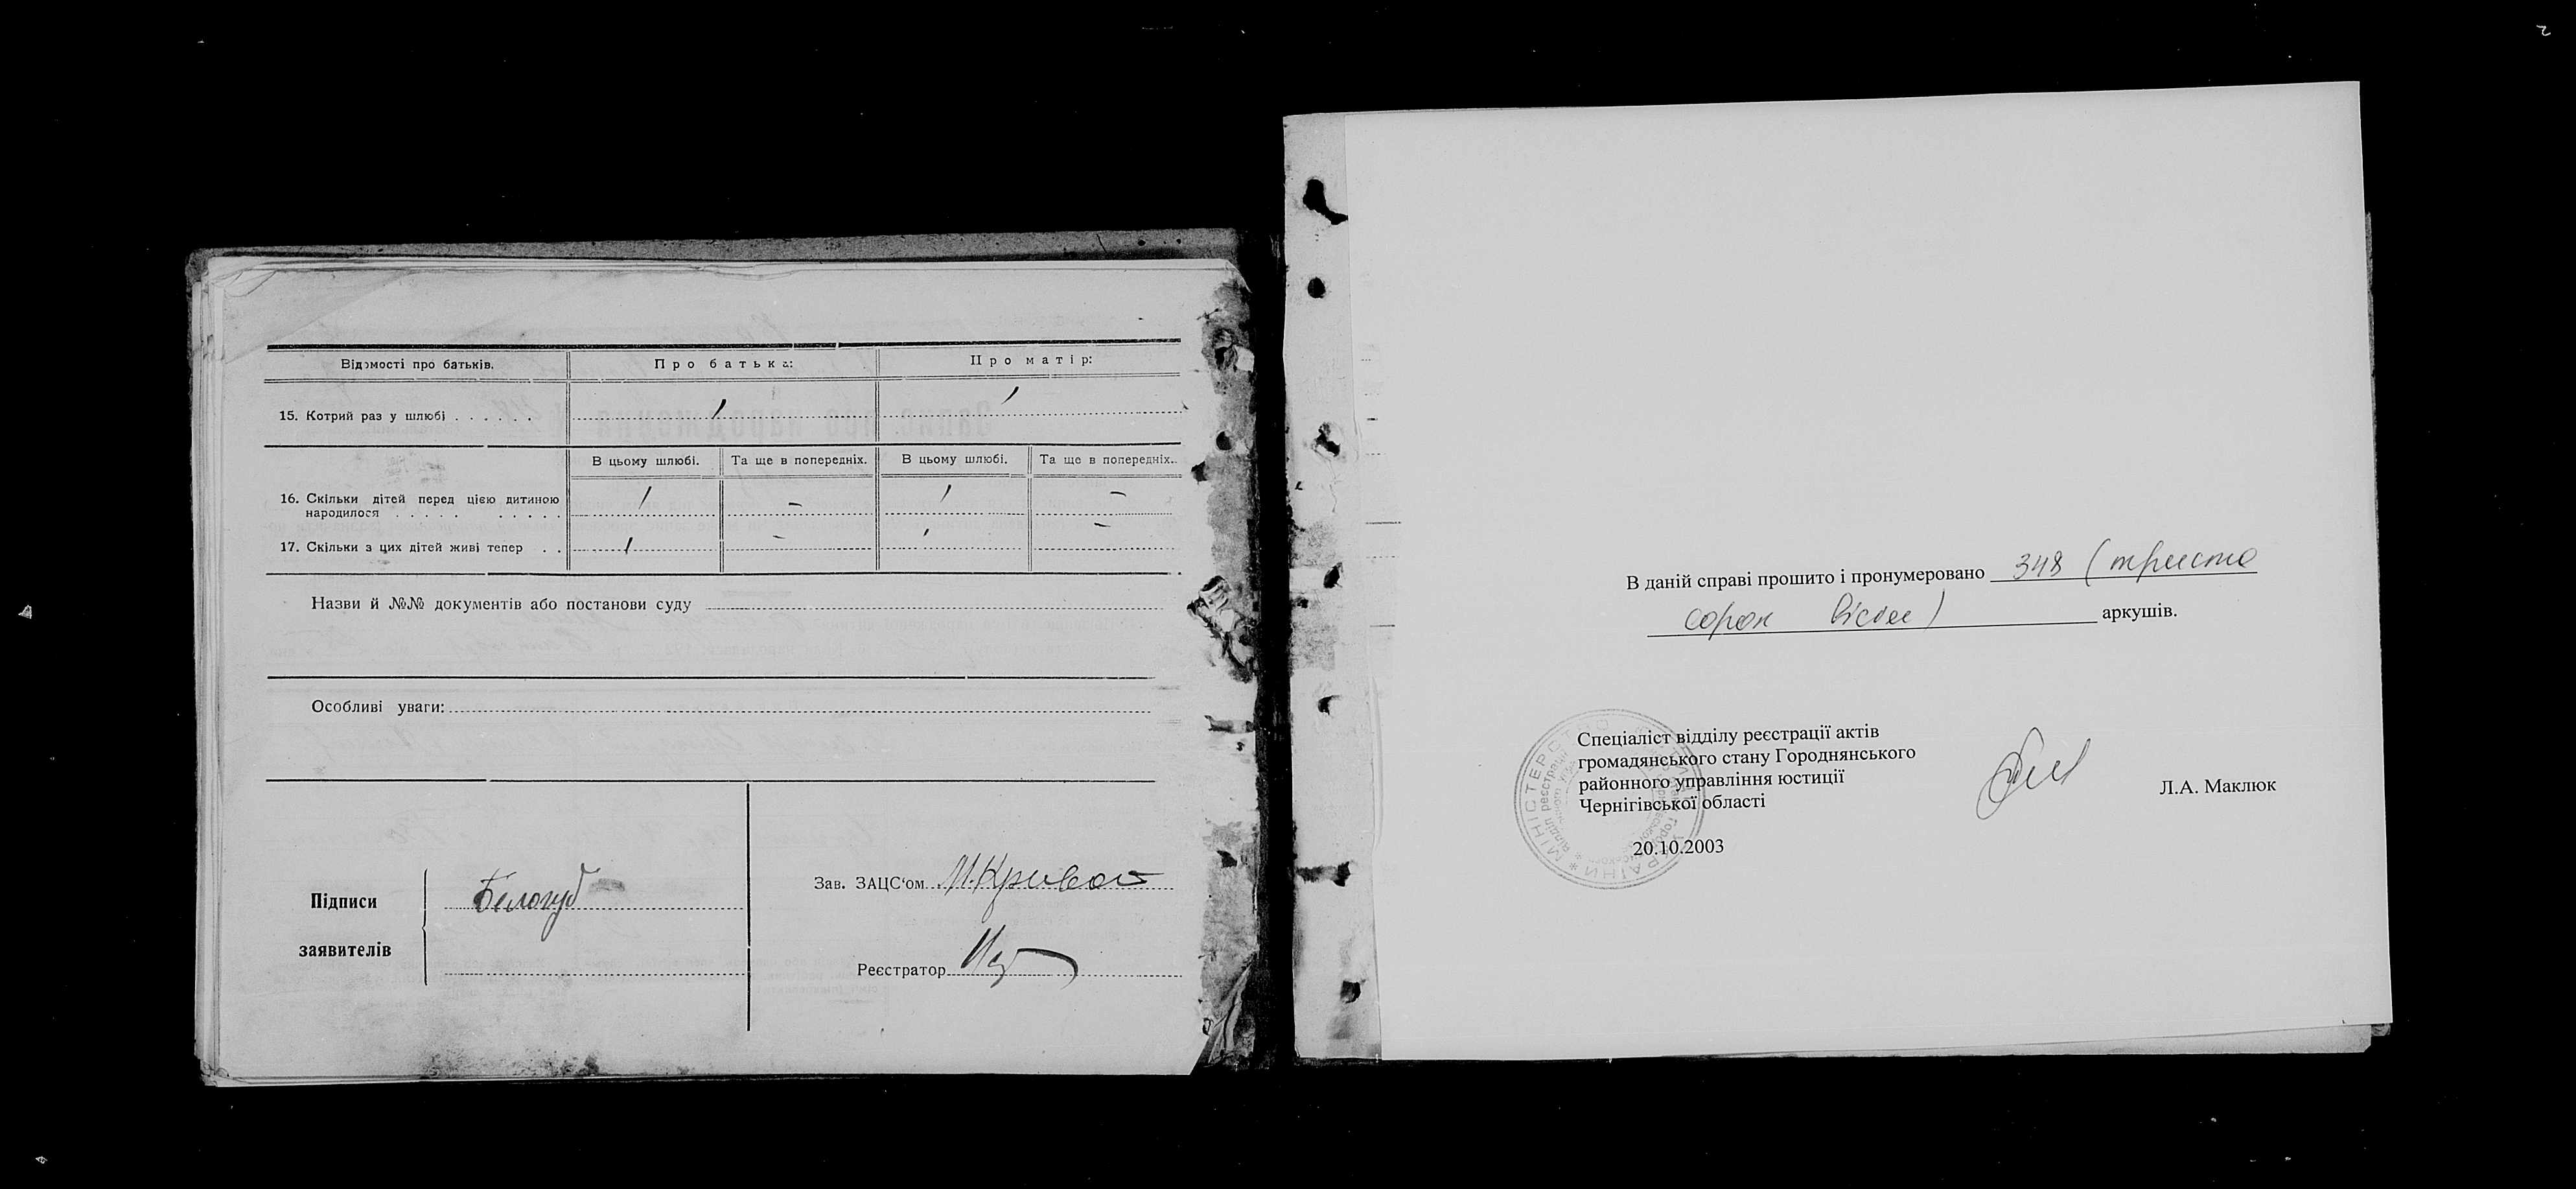 Відомості про батьків.
Про батька:
Про матір:
15. Котрий раз у шлюбі . . . . . .
1
1
В цьому шлюбі.
Та ще в попередніх.
В цьому шлюбі.
Та ще в попередніх.
16. Скільки дітей перед цією дитиною
народилося . . . . . . . . . .
1
–
1
–
17. Скільки з цих дітей живі тепер . .
1
–
1
–
Назви й №№ документів або постанови суду
Особливі уваги:
Підписи
заявителів
Белогуб
Зав. ЗАЦС'ом
Реєстратор
В даній справі прошито і пронумеровано 348 (триста
сорок вісім) аркушів.
Спеціаліст відділу реєстрації актів
громадянського стану Городнянського
районного управління юстиції
Чернігівської області
Л.А. Маклюк
20.10.2003